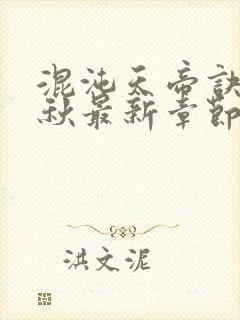 混沌天帝诀
秋最新章节
洪文泥